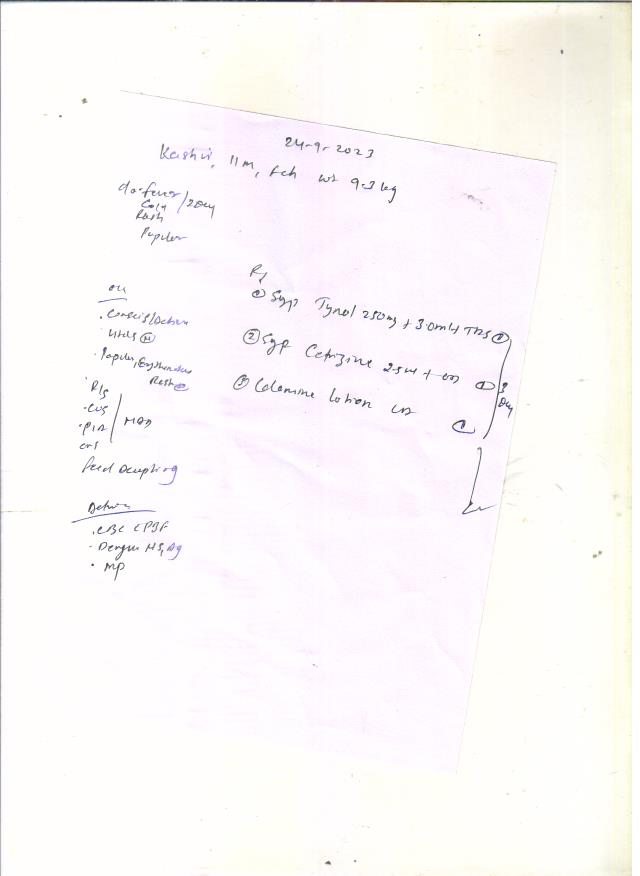 24-9-2023
Kashvi, 11m, Fch wt 9.3 kg
c/o - fever
Cold / 2 Day
Rash
Papular
O/E
Rx
① Syp Tynol 250mg + 3.0ml TDS ①
② Syp Cetrizine 2.5ml + OD ①
③ Calamine lotion ①
3 Day
. Conscious/Active
. Vitals Ⓝ
. Papular, Erythematous
Rash
. R/S
. CVS
. P/A
CNS
NAD
feed accepting
Advice
. CBC C PBF
. Dengue NS1 Ag
. MP